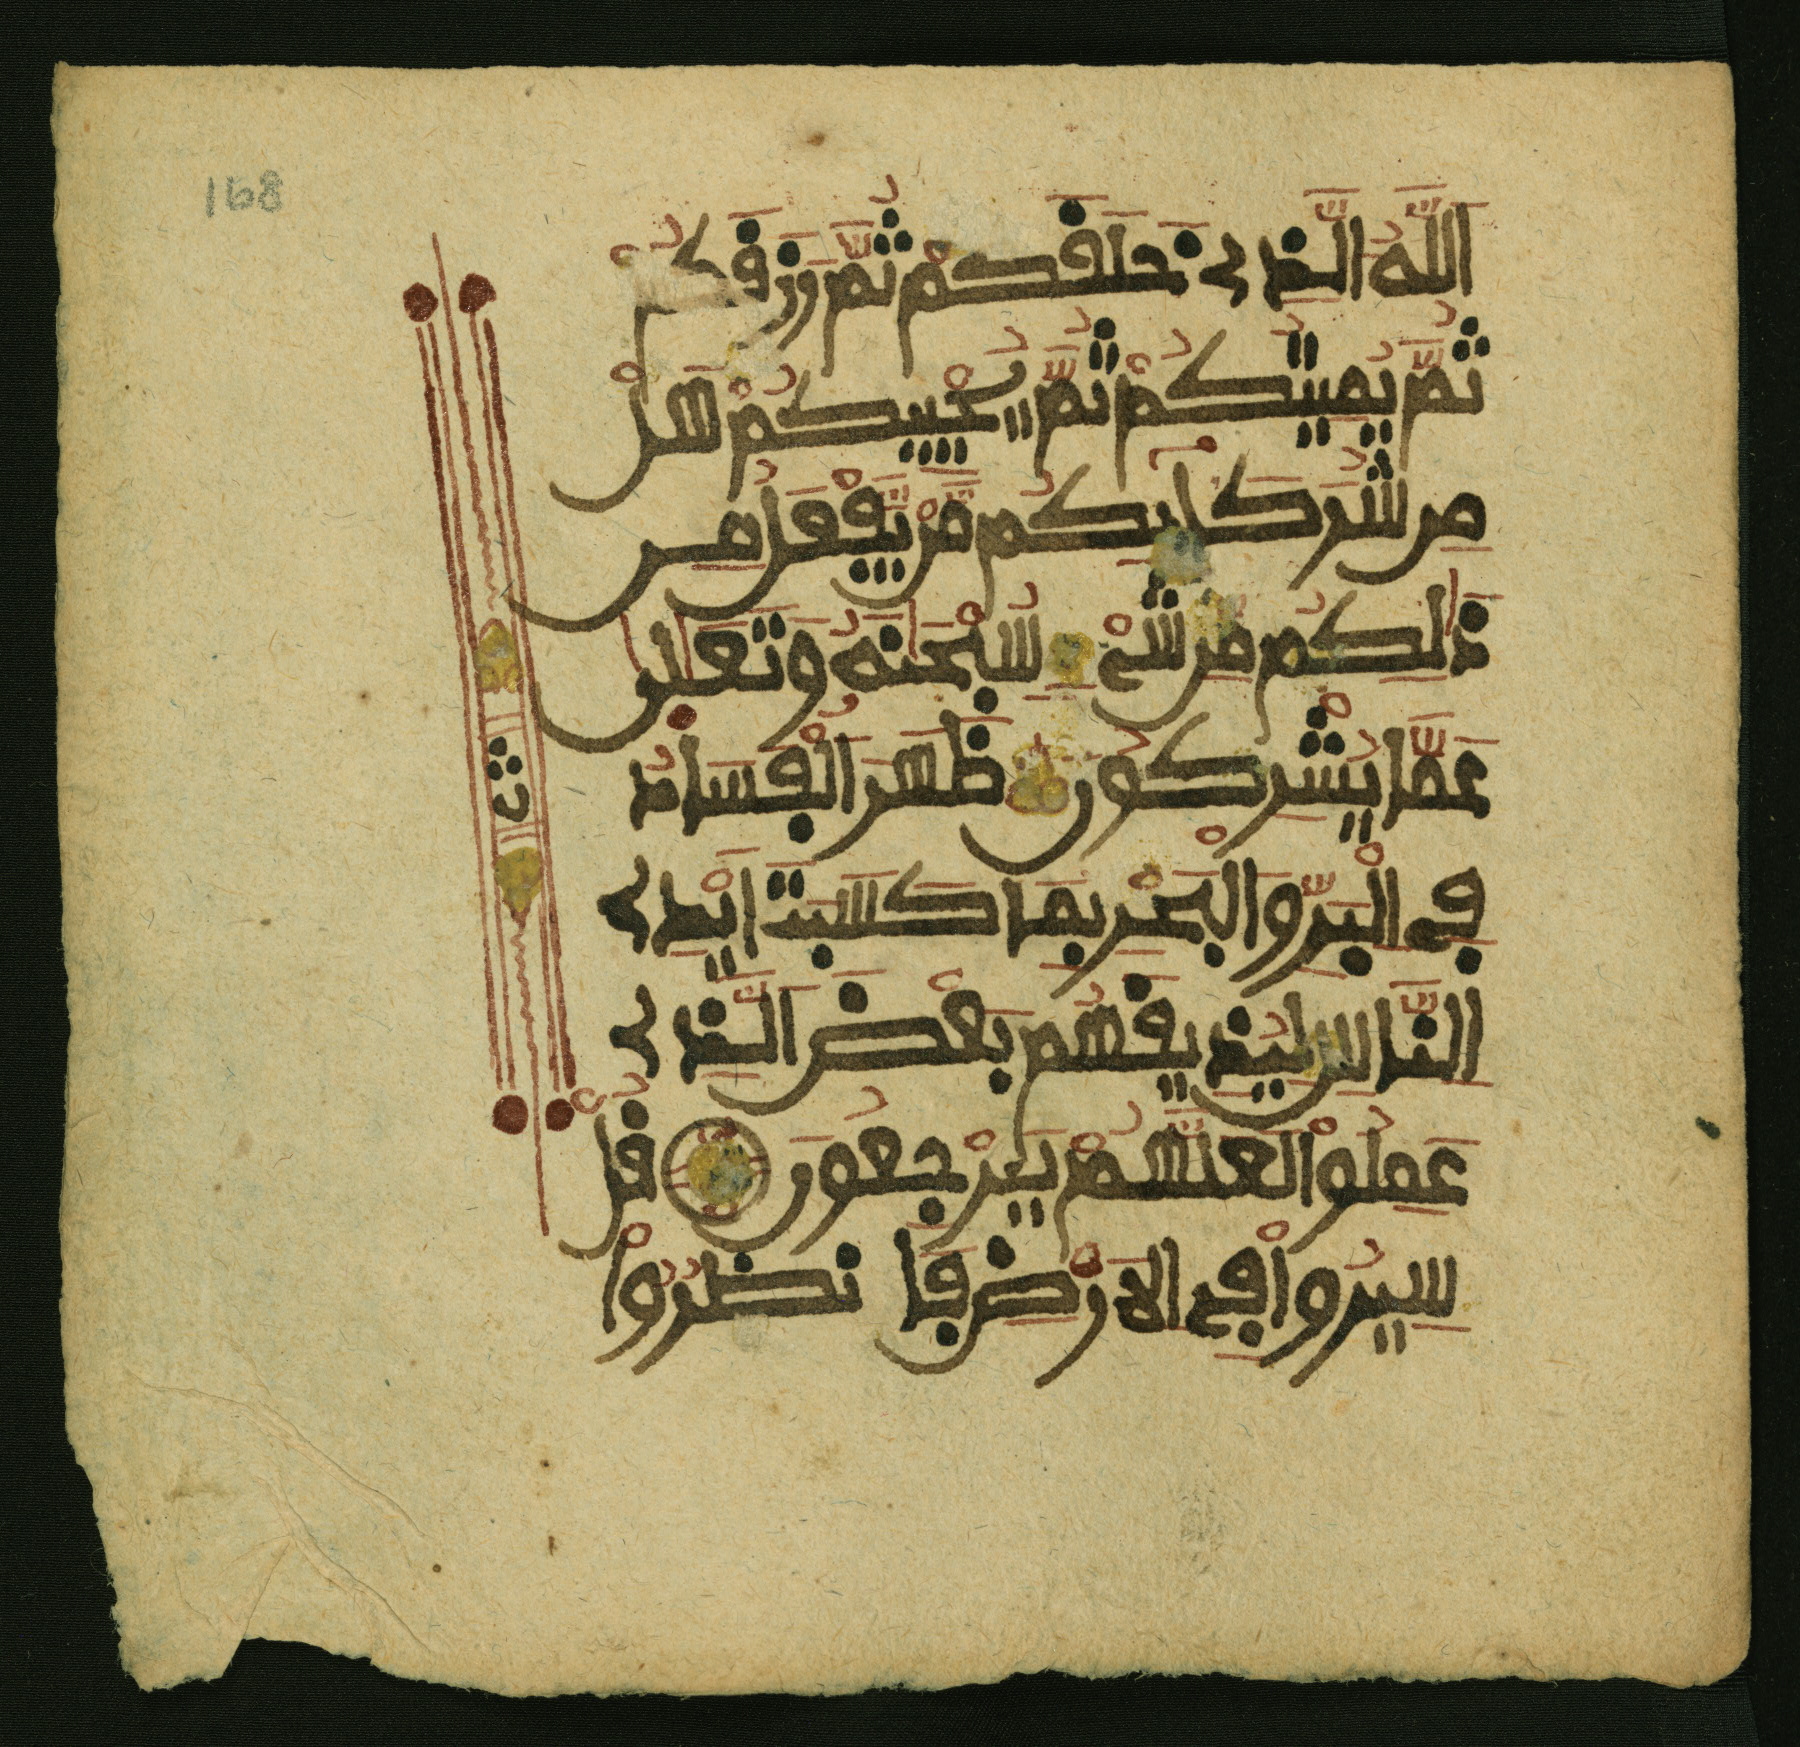 168
اللَّهُ الَّذِے خَلَقَكُمْ ثُمَّ رَزَقَكُمْ
ثُمَّ يُمِيتُكُمْ ثُمَّ يُحْيِيكُمْ هَلْ
مِن شُرَكَآئِكُم مَّنْ يَّفْعَلُ مِن
ذَٰلِكُم مِّن شَےْءٍ سُبْحَٰنَهُ وَتَعَٰلَىٰ
عَمَّا يُشْرِكُونَ ظَهَرَ الْفَسَادُ
فِے الْبَرِّ وَالْبَحْرِ بِمَا كَسَبَتْ اَيْدِے
النَّاسِ لِيُذِيقَهُم بَعْضَ الَّذِے
عَمِلُوا لَعَلَّهُمْ يَرْجِعُونَ قُلْ
سِيرُوا فِے الَارْضِ فَانظُرُوا
ث